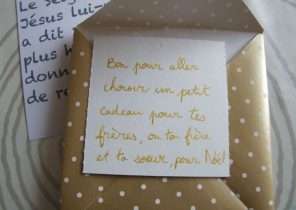 Le Seig
Jésus lui-
a dit
plus h
donn
de re
Bon pour aller
choisir un petit
cadeau pour tes
frères, ou ton frère
et ta soeur, pour Noël